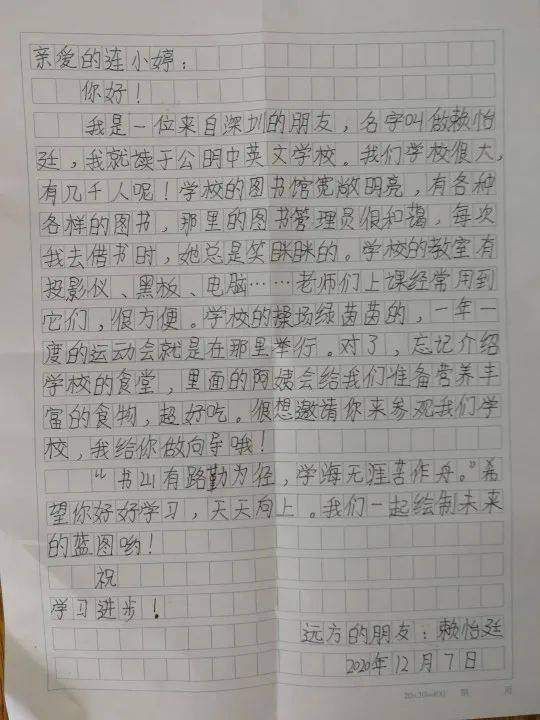 亲爱的连小婷：
你好！
我是一位来自深圳的朋友，名字叫做赖怡
廷，我就读于公明中英文学校。我们学校很大，
有几千人呢！学校的图书馆宽敞明亮，有各种
各样的图书，那里的图书管理员很和蔼，每次
我去借书时，她总是笑眯眯的。学校的教室有
投影仪、黑板、电脑……老师们上课经常用到
它们，很方便。学校的操场绿茵茵的，一年一
度的运动会就是在那里举行。对了，忘记介绍
学校的食堂，里面的阿姨会给我们准备营养丰
富的食物，超好吃。很想邀请你来参观我们学
校，我给你做向导哦！
“书山有路勤为径，学海无涯苦作舟。”希
望你好好学习，天天向上。我们一起绘制未来
的蓝图哟！
祝
学习进步！
远方的朋友：赖怡廷
2020年12月7日
20×20=400 第 页